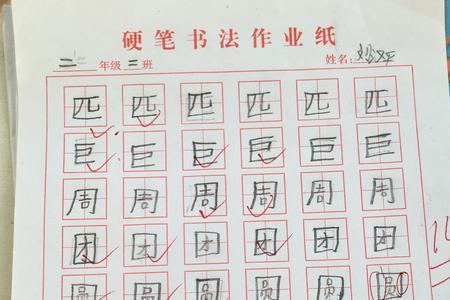 硬笔书法作业纸
二年级三班 姓名:
匹 匹 匹 匹 匹 匹 匹
巨 巨 巨 巨 巨 巨 巨
周 周 周 周 周 周 周
团 团 团 团 团 团 团
圆 圆 圆 圆 圆 圆 圆